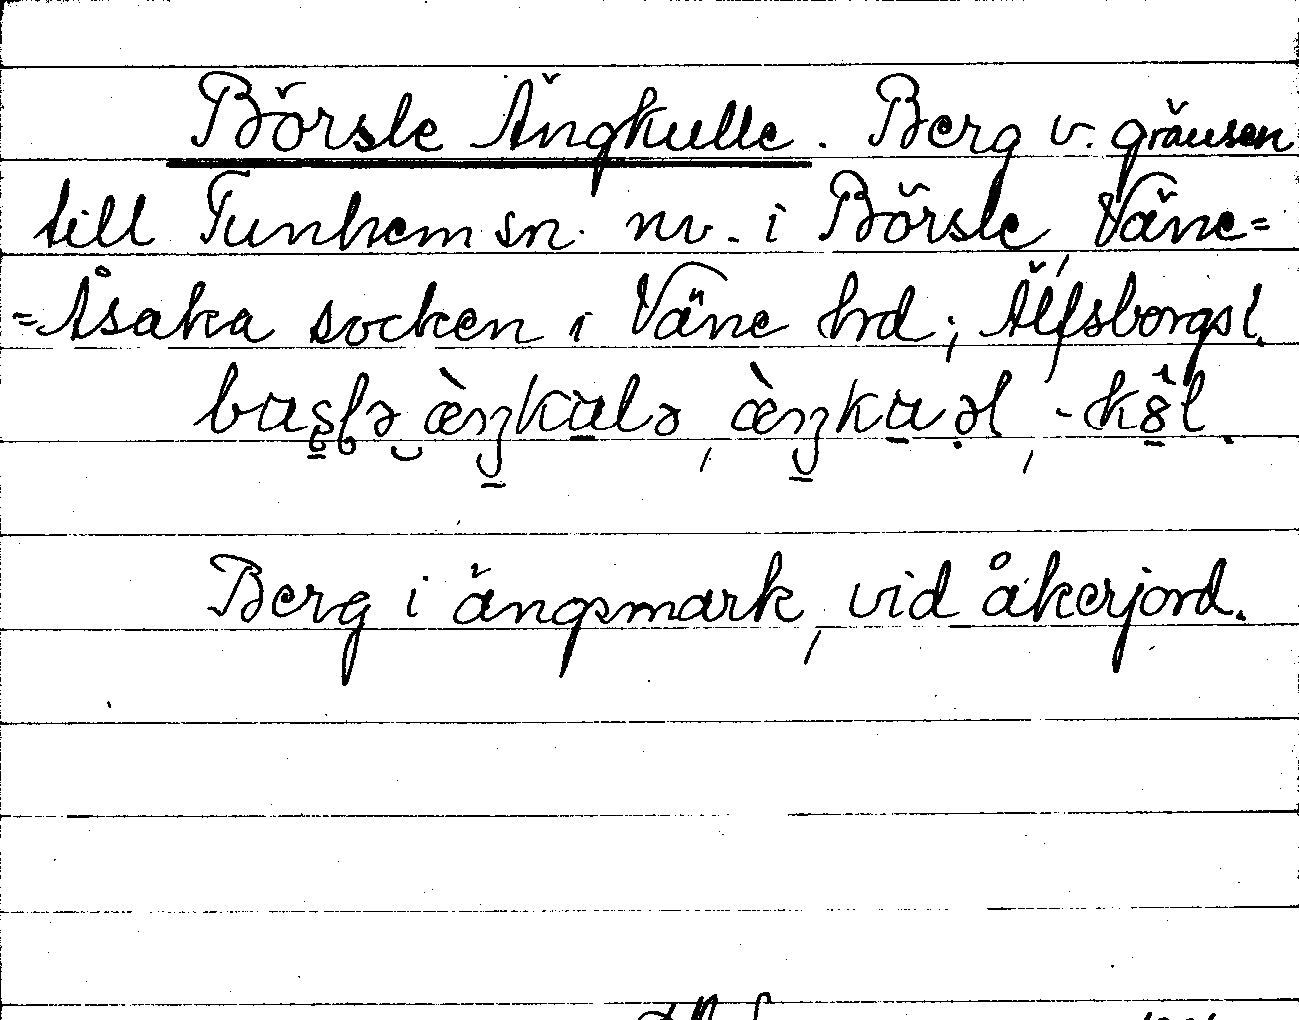 Börsle Ängkulle. Berg v. gränsen
till Tunhem sn. nv. i Börsle, Väne=
=Åsaka socken i Väne hrd; Älfsborgs l.
Berg i ängsmark, vid åkerjord.